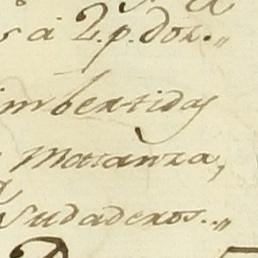 s á 2. p. doz. „
imbertidas
Matanza,
Sudaderos.. „